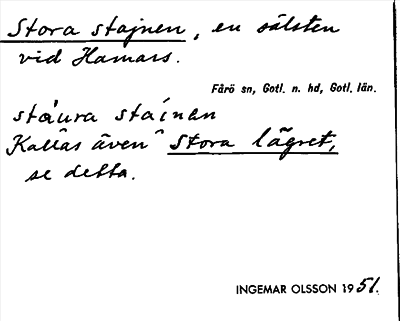 Stora stajnen, en sälsten
vid Hamars.
Fårö sn, Gotl. n. hd, Gotl. län.
stáura stáinen
Kallas även Stora lägret,
se detta.
INGEMAR OLSSON 1951.